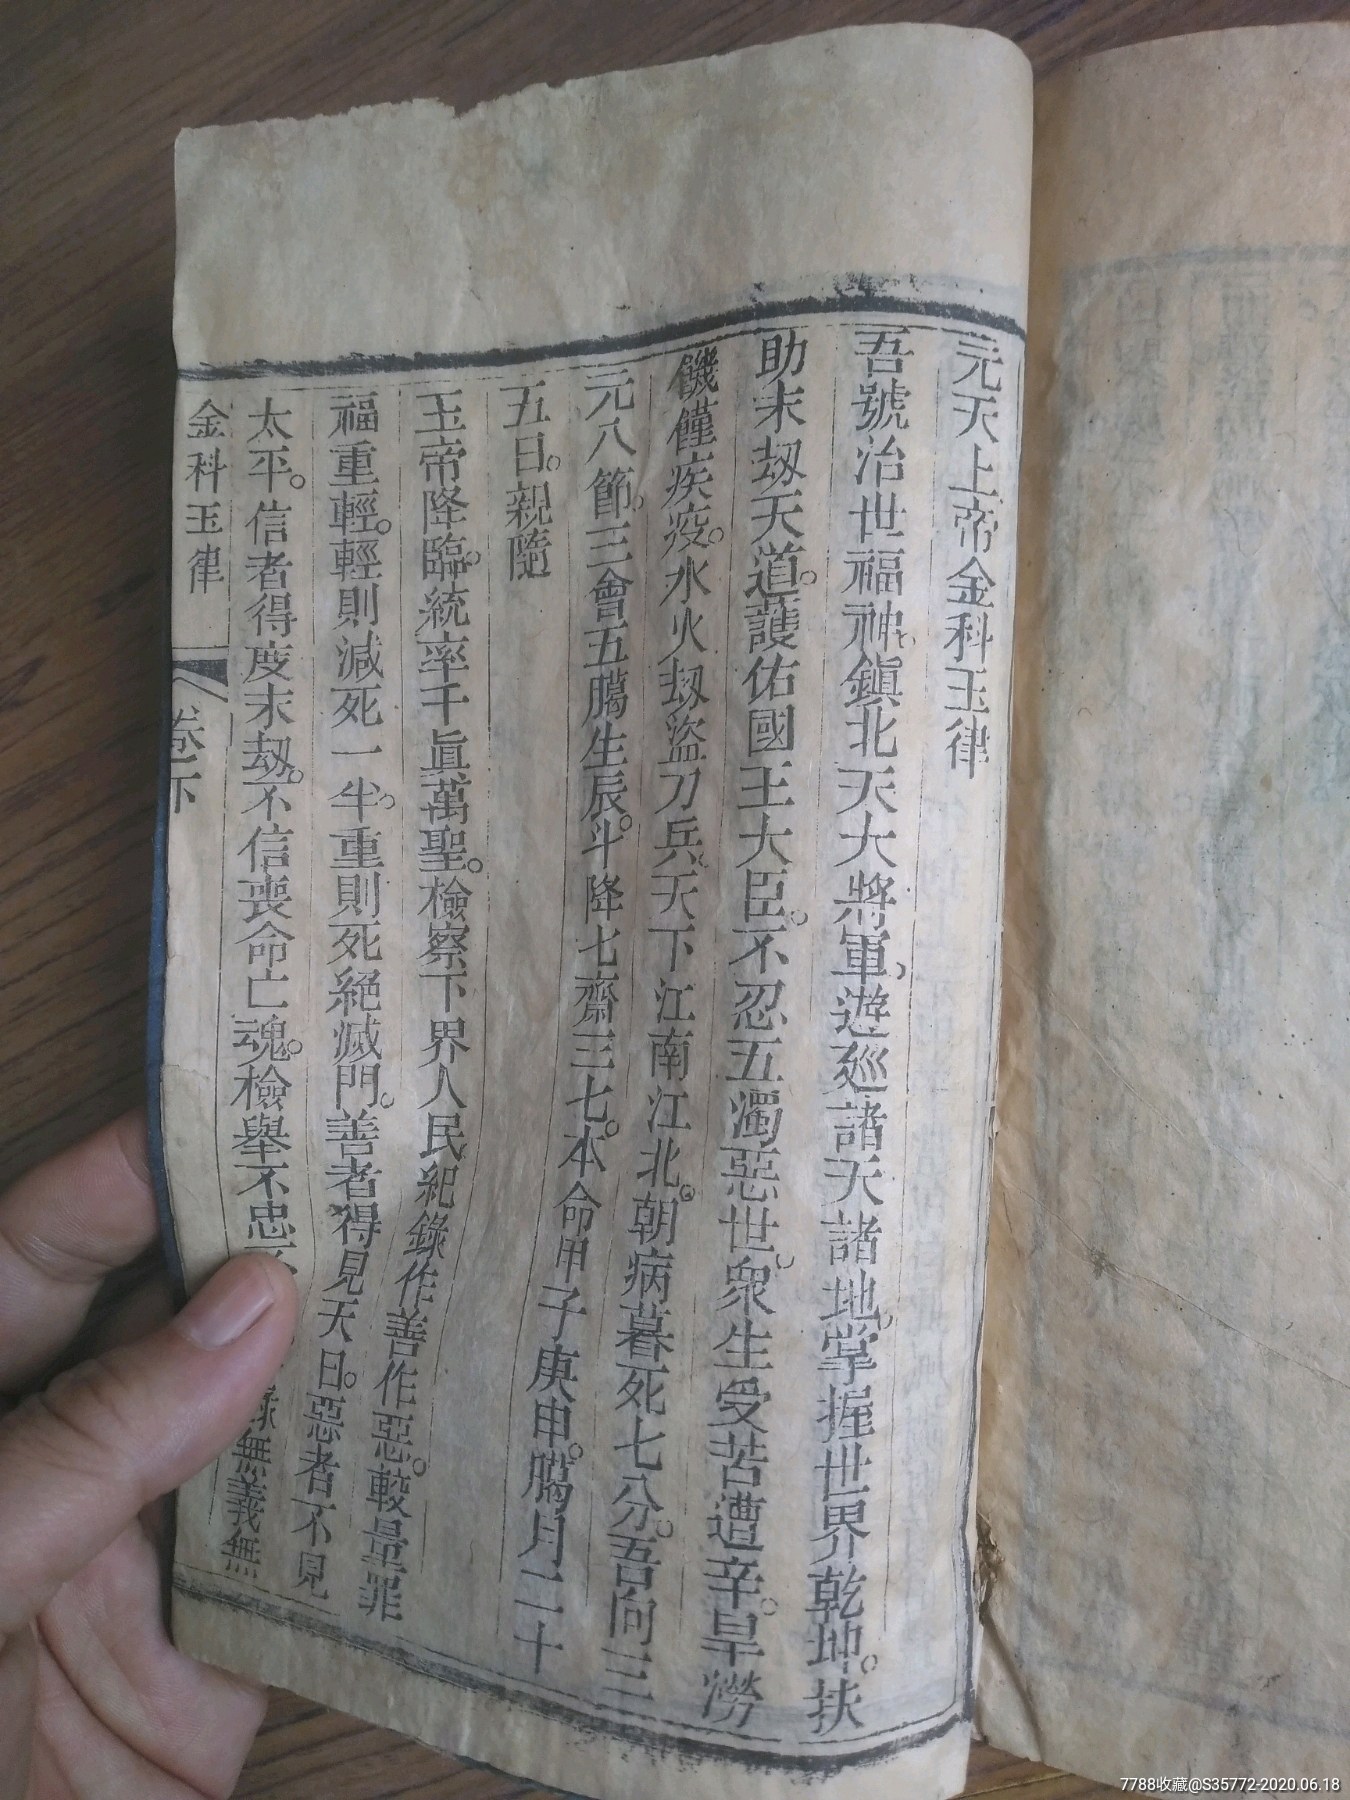 元天上帝金科玉律
吾號治世福神。鎮北天大將軍。遊廵諸天諸地。掌握世界乾坤。扶
助末刼天道。護佑國王大臣。不忍五濁惡世。衆生受苦遭辛。旱澇
饑饉疾疫。水火刼盜刀兵。天下江南江北。朝病暮死七八分。吾向三
元八節。三會五臈生辰。斗降七齋三七。本命甲子庚申。臈月二十
五日。親隨
玉帝降臨。統率千眞萬聖。檢察下界人民。紀錄作善作惡。較量罪
福重輕。輕則減死一半。重則死絕滅門。善者得見天日。惡者不見
太平。信者得度末刼。不信喪命亡魂。檢舉不忠 無義無
金科玉律 卷下
7788收藏@S35772-2020.06.18